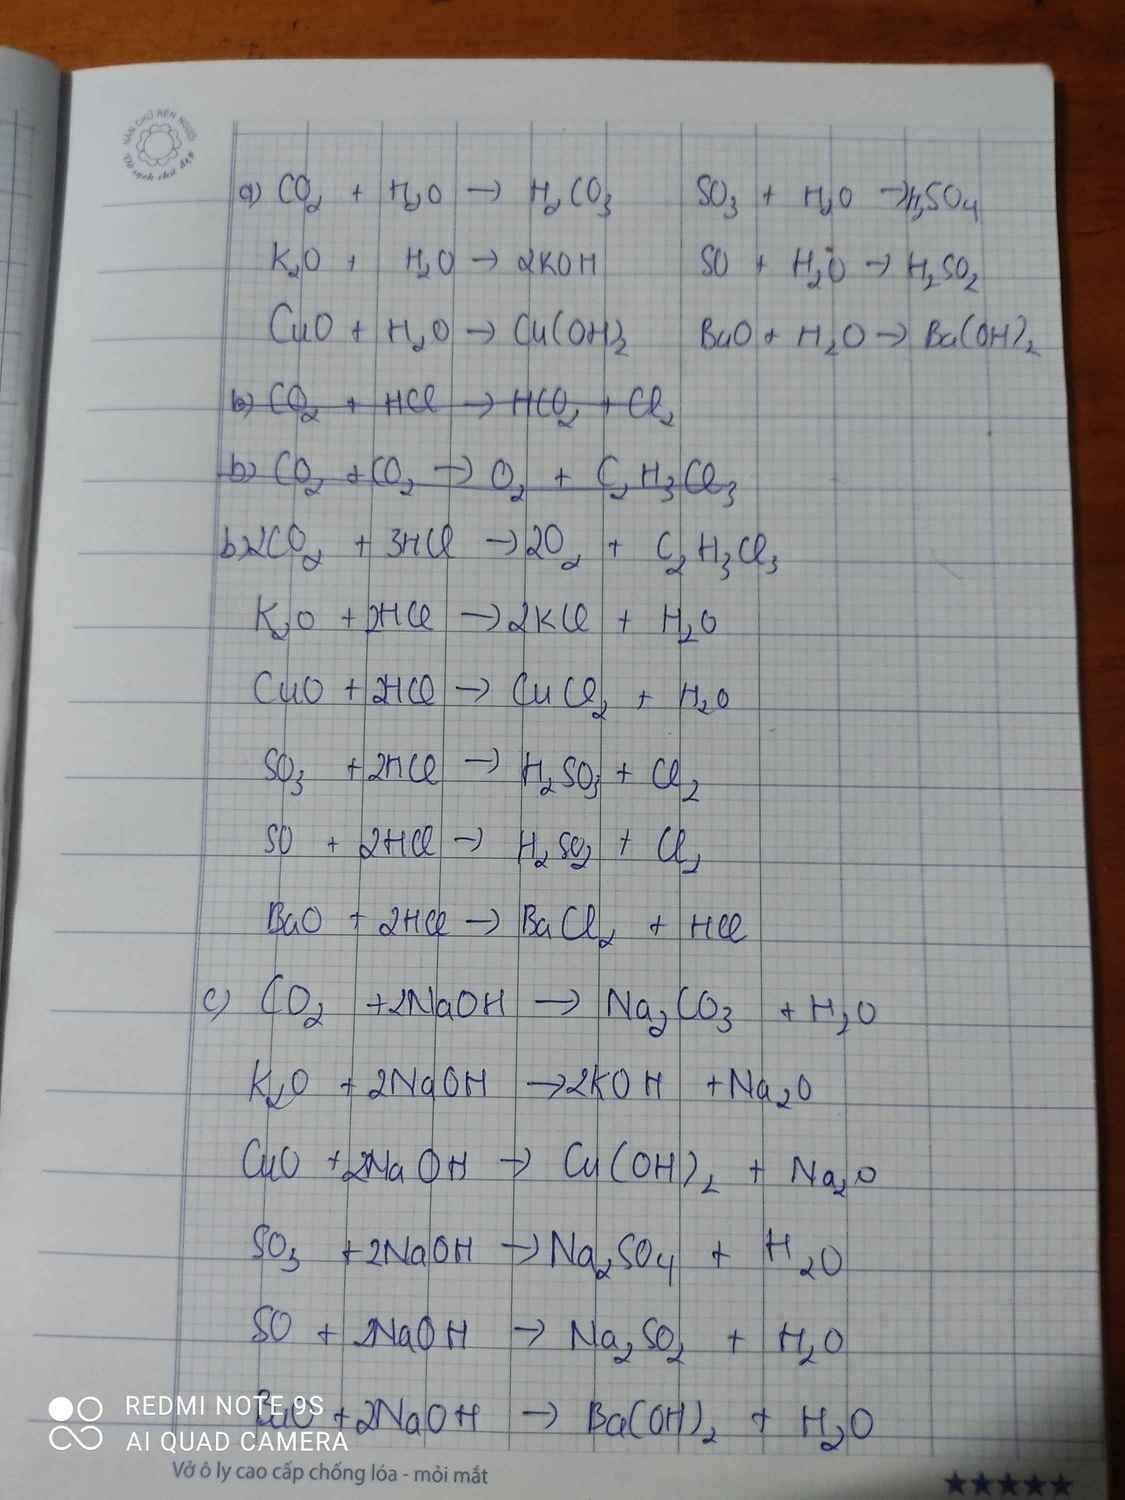 NẮN CHỮ RÈN NGƯỜI
Vở sạch chữ đẹp
a) CO2 + H2O → H2CO3 SO3 + H2O → H2SO4
K2O + H2O → 2KOH SO + H2O → H2SO2
CuO + H2O → Cu(OH)2 BaO + H2O → Ba(OH)2
b) CO2 + HCl → HCO2 + Cl2
b) CO2 + CO2 → O2 + C2H3Cl3
b) 2CO2 + 3HCl → 2O2 + C2H3Cl3
K2O + 2HCl → 2KCl + H2O
CuO + 2HCl → CuCl2 + H2O
SO3 + 2HCl → H2SO3 + Cl2
SO + 2HCl → H2SO2 + Cl2
BaO + 2HCl → BaCl2 + HCl
c) CO2 + 2NaOH → Na2CO3 + H2O
K2O + 2NaOH → 2KOH + Na2O
CuO + 2NaOH → Cu(OH)2 + Na2O
SO3 + 2NaOH → Na2SO4 + H2O
SO + 2NaOH → Na2SO2 + H2O
BaO + 2NaOH → Ba(OH)2 + H2O
REDMI NOTE 9S
AI QUAD CAMERA
Vở ô ly cao cấp chống lóa - mỏi mắt